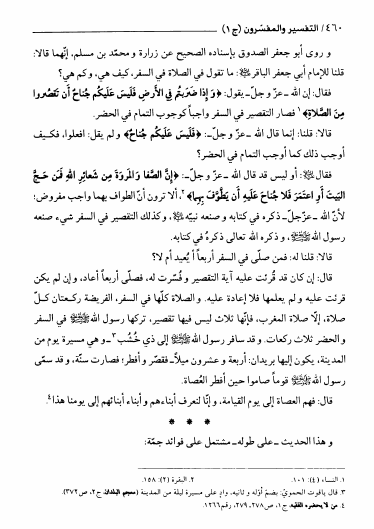 ٤٦٠ / التفسير والمفسّرون (ج ١)
و روى أبو جعفر الصدوق بإسناده الصحيح عن زرارة و محمّد بن مسلم، إنّهما قالا:
قلنا للإمام أبي جعفر الباقر ﷺ: ما تقول في الصلاة في السفر، كيف هي، وكم هي؟
فقال: إن الله ـ عزّ وجلّ ـ يقول: ﴿وَإِذَا ضَرَبْتُمْ فِي الْأَرْضِ فَلَيْسَ عَلَيْكُمْ جُنَاحٌ أَن تَقْصُرُوا
مِنَ الصَّلَاةِ﴾١ فصار التقصير في السفر واجباً كوجوب التمام في الحضر.
قالا: قلنا: إنما قال الله ـ عزّ وجلّ ـ: ﴿فَلَيْسَ عَلَيْكُمْ جُنَاحٌ﴾ و لم يقل: افعلوا، فكيف
أوجب ذلك كما أوجب التمام في الحضر؟
فقال: أو ليس قد قال الله ـ عزّ وجلّ ـ: ﴿إِنَّ الصَّفَا وَالْمَرْوَةَ مِن شَعَائِرِ اللهِ فَمَنْ حَجَّ
الْبَيْتَ أَوِ اعْتَمَرَ فَلَا جُنَاحَ عَلَيْهِ أَن يَطَّوَّفَ بِهِمَا﴾٢، ألا ترون أنّ الطواف بهما واجب مفروض؛
لأنّ الله ـ عزّ وجلّ ـ ذكره في كتابه و صنعه نبيّه، وكذلك التقصير في السفر شيء صنعه
رسول الله ﷺ، و ذكره الله تعالى ذكرهُ في كتابه.
قالا: قلنا له: فمن صلّى في السفر أربعاً أيُعيد أم لا؟
قال: إن كان قد قُرئت عليه آية التقصير و فُسّرت له، فصلّى أربعاً أعاد، وإن لم يكن
قرئت عليه و لم يعلمها فلا إعادة عليه. و الصلاة كلّها في السفر، الفريضة ركعتان كلّ
صلاة، إلّا صلاة المغرب، فإنّها ثلاث ليس فيها تقصير، تركها رسول الله ﷺ في السفر
والحضر ثلاث ركعات. و قد سافر رسول الله ﷺ إلى ذي خُشُب٣ ـ و هي مسيرة يوم من
المدينة، يكون إليها بريدان: أربعة و عشرون ميلاً ـ فقصّر و أفطر؛ فصارت سنّة، و قد سمّى
رسول الله ﷺ قوماً صاموا حين أفطر العُصاة.
قال: فهم العصاة إلى يوم القيامة، و إنّا لنعرف أبناءهم و أبناء أبنائهم إلى يومنا هذا٤.
* * *
و هذا الحديث ـ على طوله ـ مشتمل على فوائد جمّة:
١. النساء (٤): ١٠١.
٢. البقرة (٢): ١٥٨.
٣. قال ياقوت الحمويّ: بضمّ أوّله و ثانيه، وادٍ على مسيرة ليلة من المدينة (معجم البلدان، ج ٢، ص ٣٧٢).
٤. من لا يحضره الفقيه، ج ١، ص ٢٧٨ـ٢٧٩، رقم ١٢٦٦.